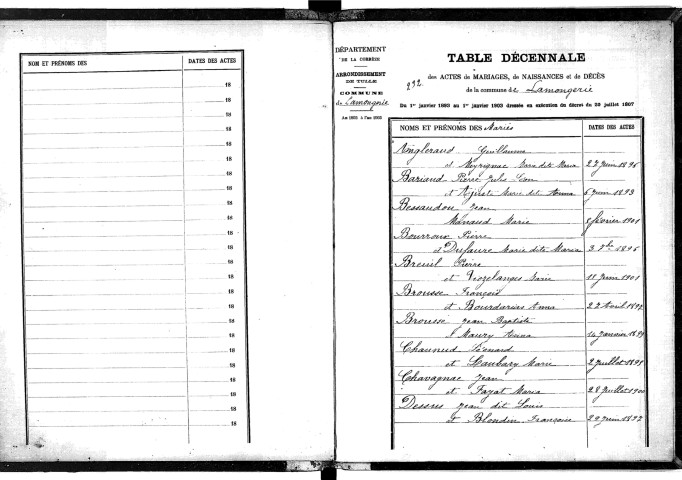 NOM ET PRÉNOMS DES
DATES DES ACTES
18
18
18
18
18
18
18
18
18
18
18
18
18
18
18
18
18
18
DÉPARTEMENT
DE LA CORRÈZE
ARRONDISSEMENT
DE TULLE
COMMUNE
de Lamongerie
An 1893 à l'an 1903
232
TABLE DÉCENNALE
des ACTES de MARIAGES, de NAISSANCES et de DÉCÈS
de la commune de Lamongerie
Du 1er janvier 1893 au 1er janvier 1903 dressée en exécution du décret du 20 juillet 1807
NOMS ET PRÉNOMS DES Mariés
DATES DES ACTES
Angleraud Guillaume
et Meyrignac Marie dite Maria 27 juin 1896
Bariaud Pierre Jules Léon
et Marie dite Anna 6 juin 1893
Bessaudou Jean
Ménaud Marie 8 février 1901
Bourroux Pierre
et Dufaure Marie dite Maria 3 1896
Breuil Pierre
et Marie 11 juin 1901
Brousse François
et Bourdarias Anna 22 avril 1897
Brousse Jean Baptiste
et Maury Anna 14 janvier 1899
Chaunud Léonard
et Marie 2 juillet 1898
Chavagnac Jean
et Fayat Maria 28 juillet 1900
Dessus Jean dit Louis
et Blondin Françoise 29 juin 1897